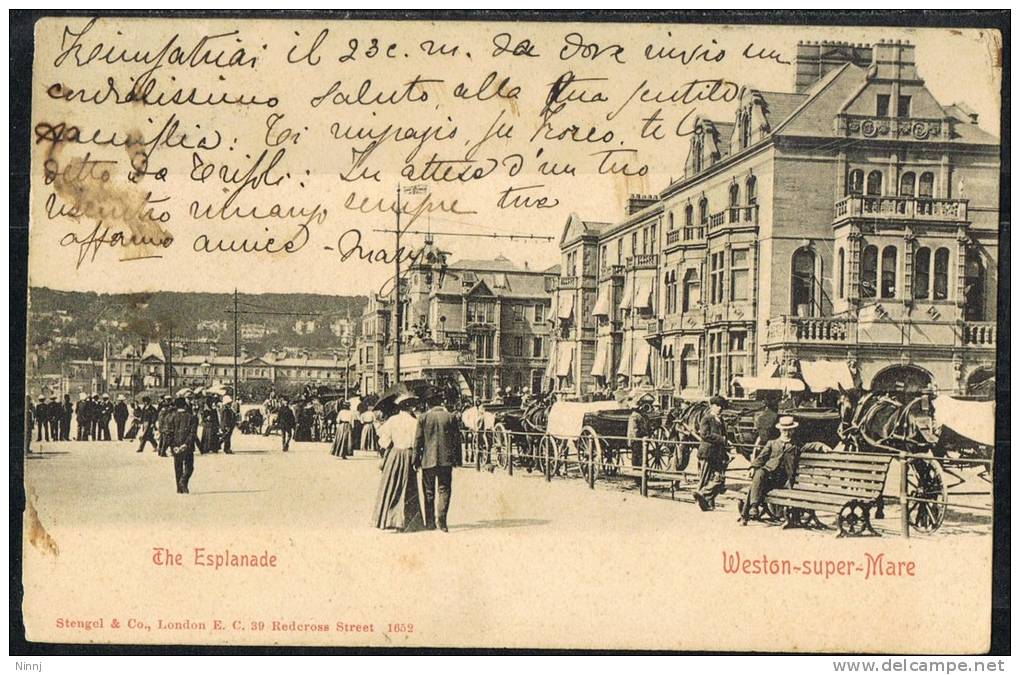 il 23 c. m. da dove invio un
cordialissimo saluto alla tua gentile
famiglia: Ti
detto da Tripoli: In attesa d'un tuo
riscontro rimango sempre tua
affma amica Mary
The Esplanade
Weston-super-Mare
Stengel & Co., London E. C. 39 Redcross Street 1652
Ninnj
www.delcampe.net